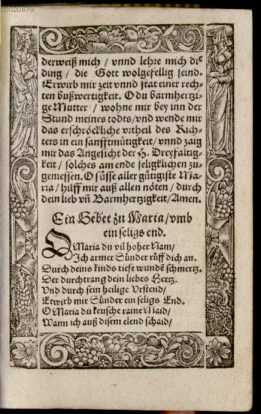 derweiß mich / vnnd lehre mich die
ding / die Gott wolgefellig seind.
Erwirb mir zeit vnnd stat einer rech-
ten bußwertigkeit. O du barmhertzi-
ge Mutter / wohne mir bey inn der
Stund meines todts / vnd wende mir
das erschröckliche vrtheil des Rich-
ters in ein sanfftmütigkeit / vnnd zaig
mir das Angesicht der H. Dreyfaltig-
keit / solches am ende seligklichen zu-
geniessen. O süsse aller gütigiste Ma-
ria / hilff mir auß allen nöten / durch
dein lieb vñ Barmhertzigkeit / Amen.
Ein Gebet zu Maria / vmb
ein seligs end.
O Maria du vil hoher Nam /
Ich armer Sünder rüff dich an.
Durch deins kinds tieffe wundẽ schmertz.
Der durchtrang dein liebes Hertz.
Vnd durch sein heilige Vrstend /
Erwirb mir Sünder ein seligs End.
O Maria du keusche raine Maid /
Wann ich auß disem elend schaid /